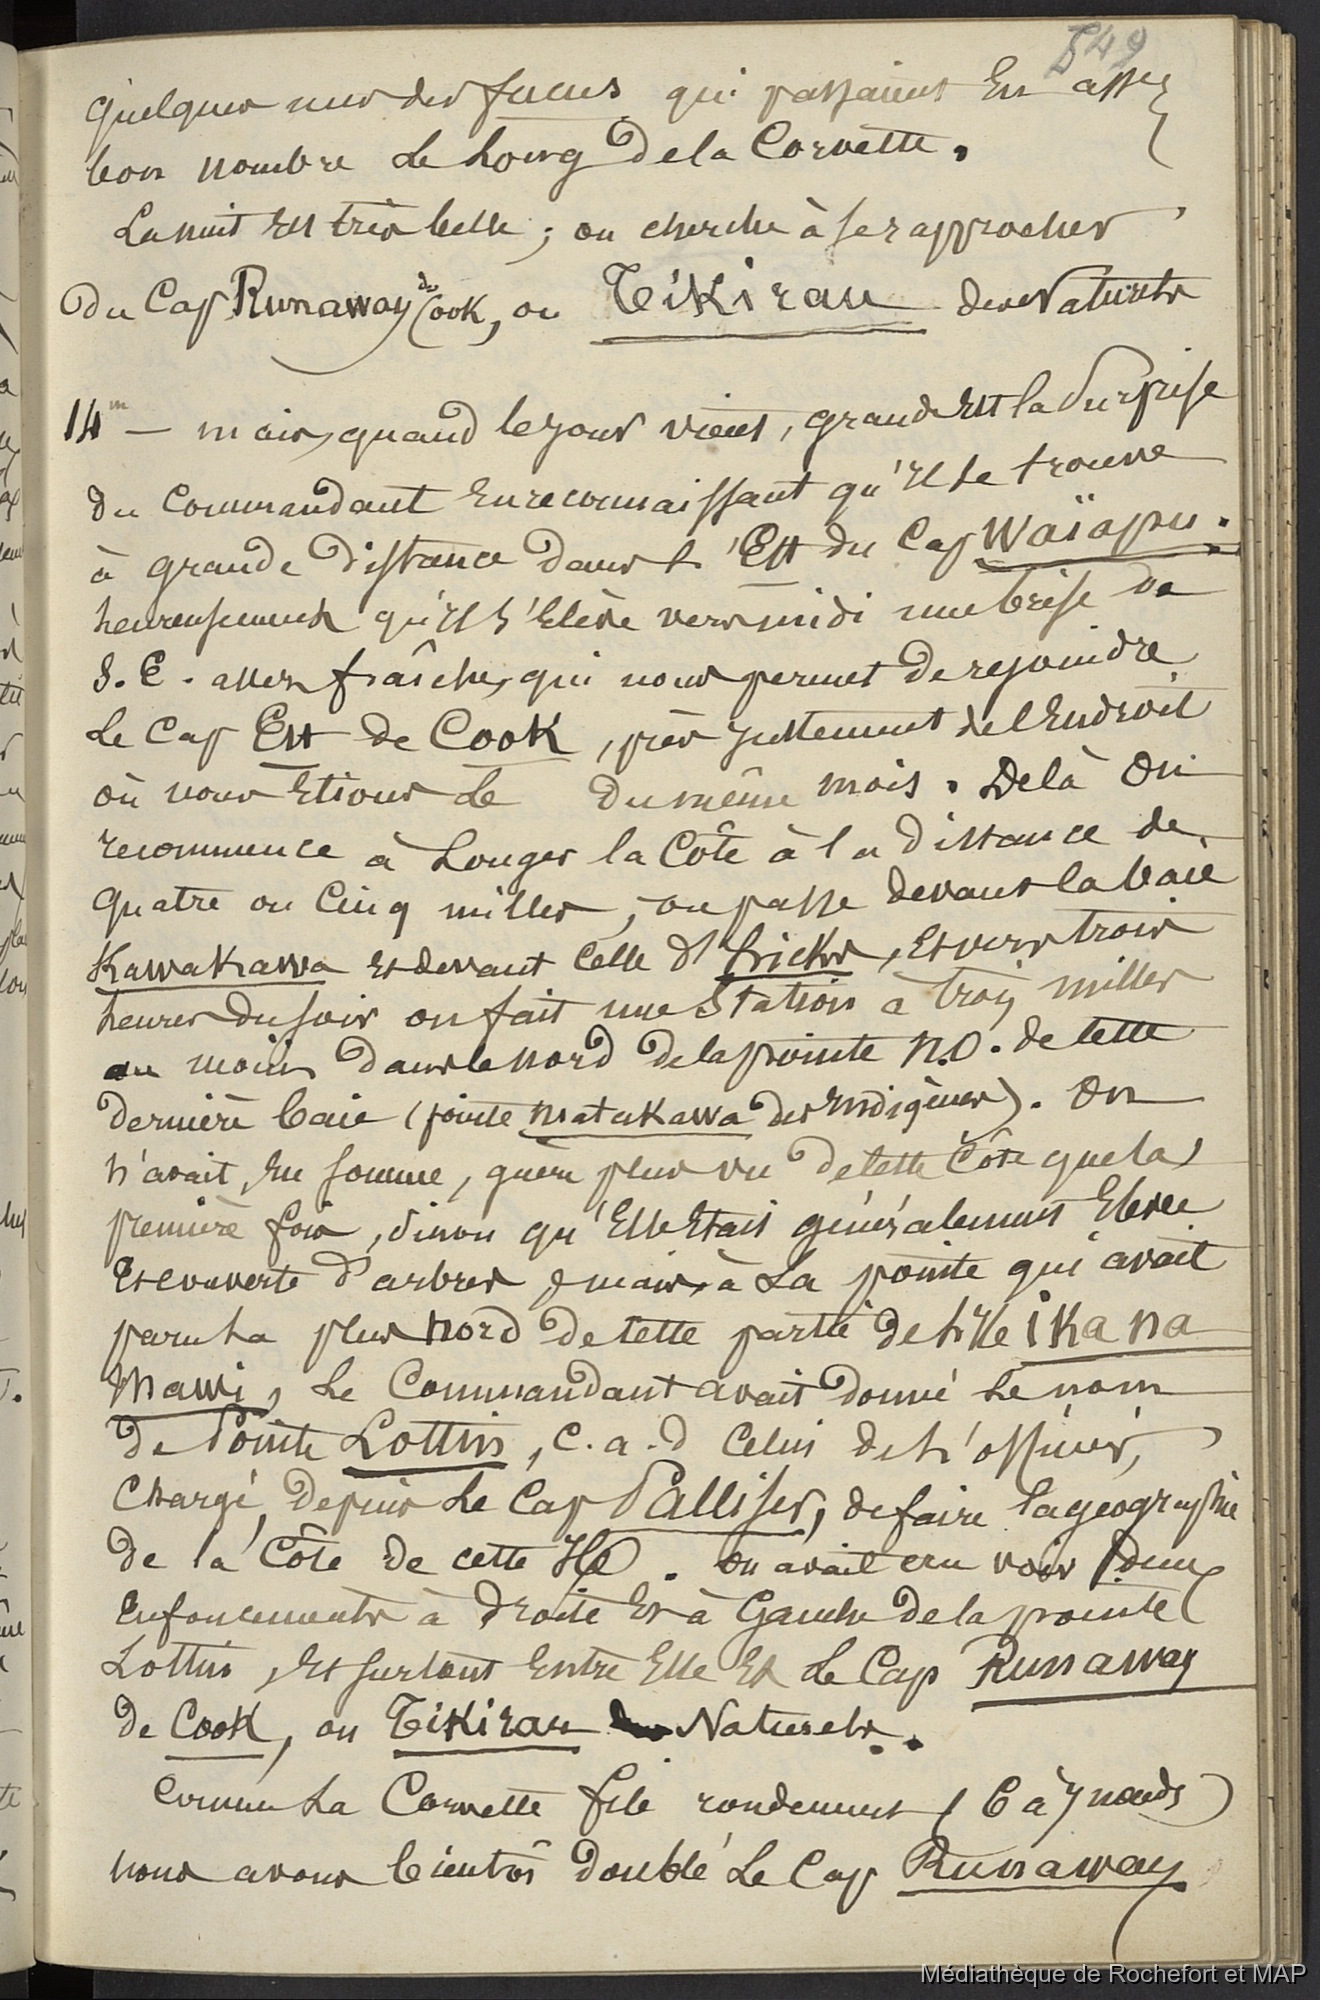 549
quelques uns des fucus qui passaient En assez
bon nombre Le Long de la Corvette.
La nuit Est très belle ; on cherche à se rapprocher
Du Cap Runaway de Cook, ou Tékirau des Naturels
14 m — mais, quand le jour vient, grande Est la Surprise
du Commandant En reconnaissant qu'Il se trouve
à grande Distance dans L'Est du Cap Waïapu.
heureusement qu'Il s'Elève vers midi une brise de
S. E. assez fraîche, qui nous permet de rejoindre
Le Cap Est de Cook, près justement de l'Endroit
où nous Etions Le du même mois. De là On
recommence à Longer la Côte à la Distance de
quatre ou Cinq milles ; on passe devant la baie
Kawakawa et devant Celle d'hicks, Et vers trois
heures du soir on fait une Station à trois milles
au moins dans le nord de la pointe N.O. de cette
dernière baie (pointe Matakawa des Indigènes). On
n'avait, En somme, guère plus vu de cette Côte que la
première fois, sinon qu'Elle Etait généralement Elevée
Et couverte d'arbres ; mais, à La pointe qui avait
paru La plus Nord de cette partie de L'Ile ika na
Mawi, Le Commandant avait donné Le nom
de Pointe Lottin, C.a.d Celui de L'officier,
Chargé, Depuis Le Cap Palliser, de faire la géographie
de la Côte de cette Ile. On avait cru voir deux
Enfoncements à droite Et à Gauche de la pointe
Lottin, Et surtout Entre Elle Et Le Cap Runaway
de Cook, ou Tékirau des Naturels.
Comme La Corvette file rondement (6 à 7 nœuds)
nous avons bientôt doublé Le Cap Runaway
Médiathèque de Rochefort et MAP